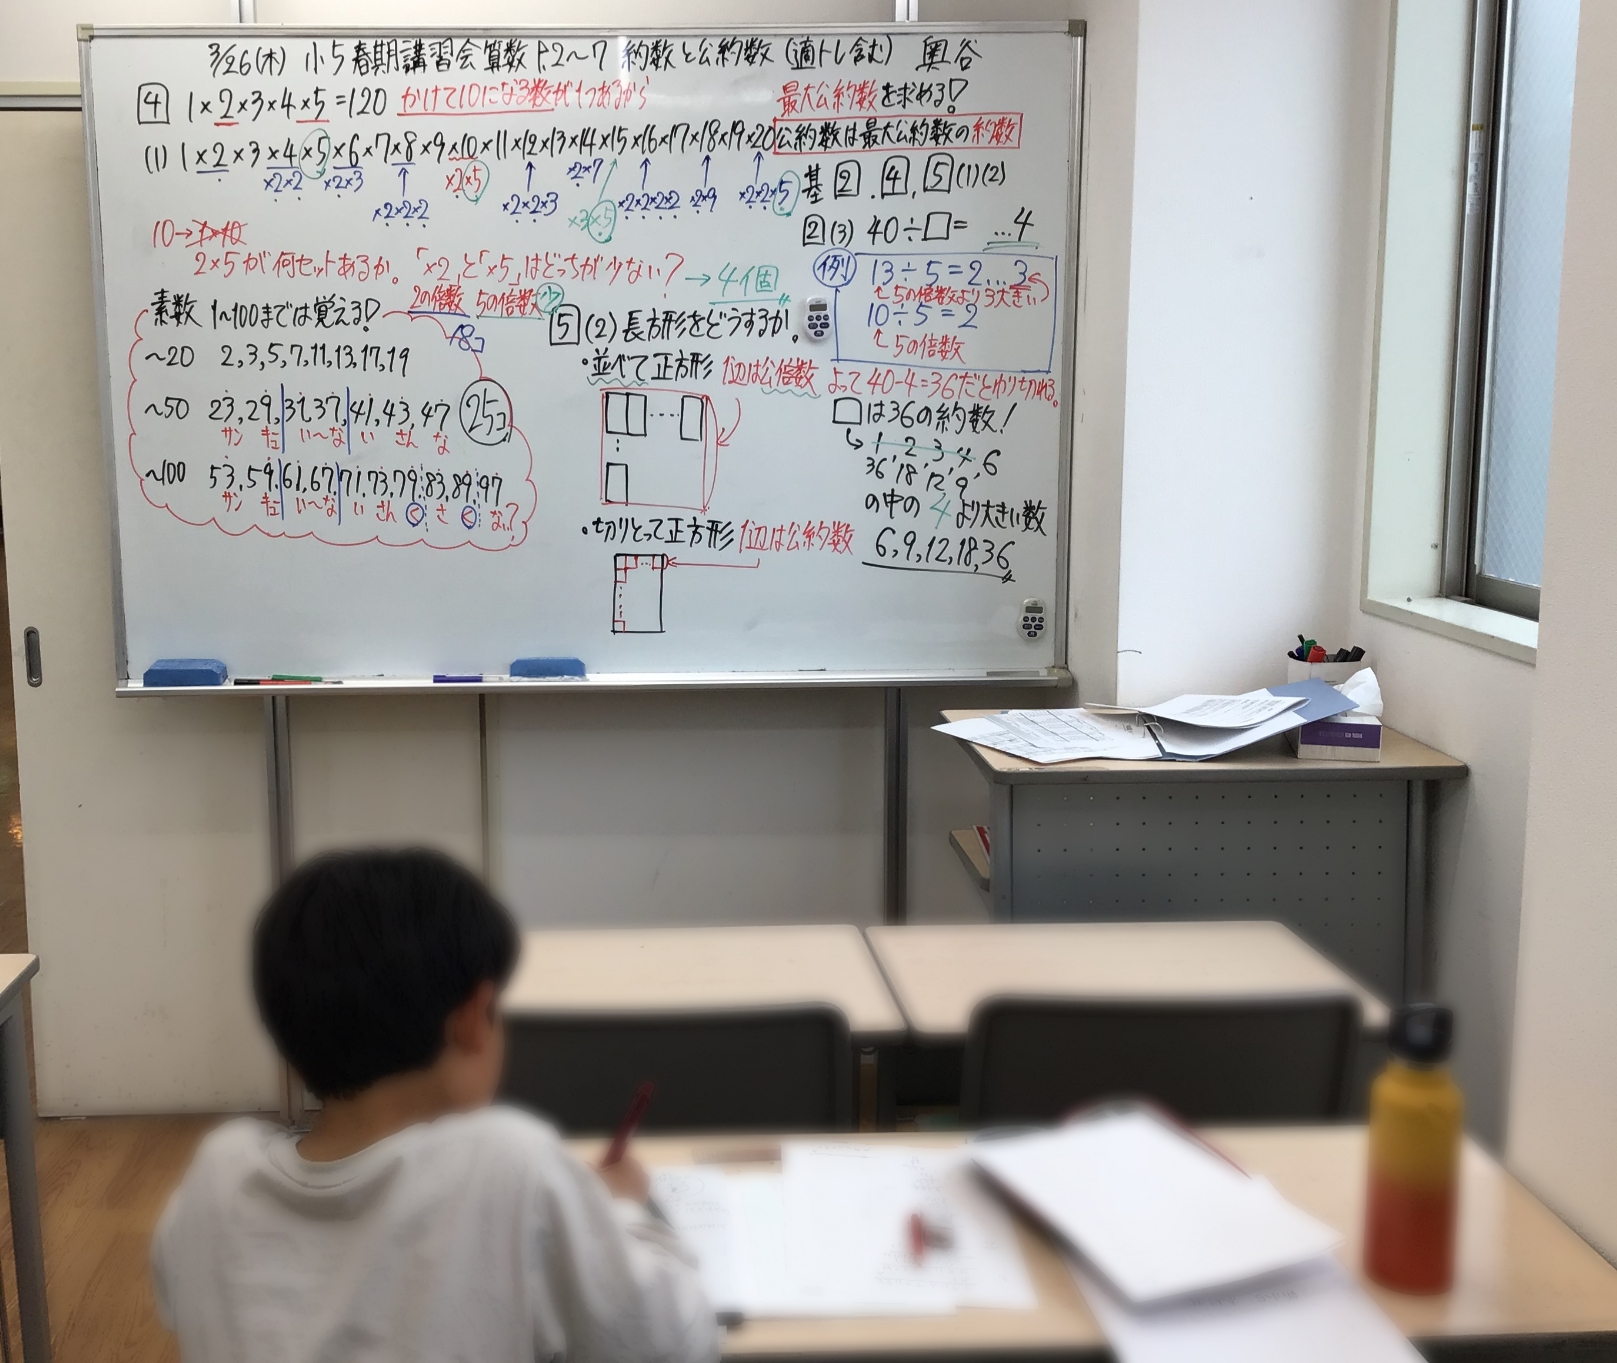 3/26(木) 小5春期講習会算数 P.2～7 約数と公約数(適トレ含む) 奥谷
4 1×2×3×4×5=120 かけて10になる数が1つあるから
(1) 1×2×3×4×5×6×7×8×9×10×11×12×13×14×15×16×17×18×19×20
×2×2 ×2×3 ×2×5 ×2×7
×2×2×2 ×2×2×3 ×3×5 ×2×2×2×2 ×2×9 ×2×2×5
10→1×10
2×5が何セットあるか。「×2」と「×5」はどっちが少ない？→4個
2の倍数 5の倍数 少
18コ
素数 1～100までは覚える！
～20 2,3,5,7,11,13,17,19
～50 23,29,31,37,41,43,47 25コ
サン キュ い～な い さん な
～100 53,59,61,67,71,73,79,83,89,97
サン キュ い～な い さん く さ く ない？
5 (2) 長方形をどうするか。
・並べて正方形 1辺は公倍数
・切りとって正方形 1辺は公約数
最大公約数を求める！
公約数は最大公約数の約数
基 2. 4, 5 (1)(2)
2 (3) 40÷□= …4
例 13÷5=2…3
5の倍数より3大きい
10÷5=2
5の倍数
よって40-4=36だとわり切れる。
□は36の約数！
1, 2, 3, 4, 6
36, 18, 12, 9
の中の4より大きい数
6,9,12,18,36